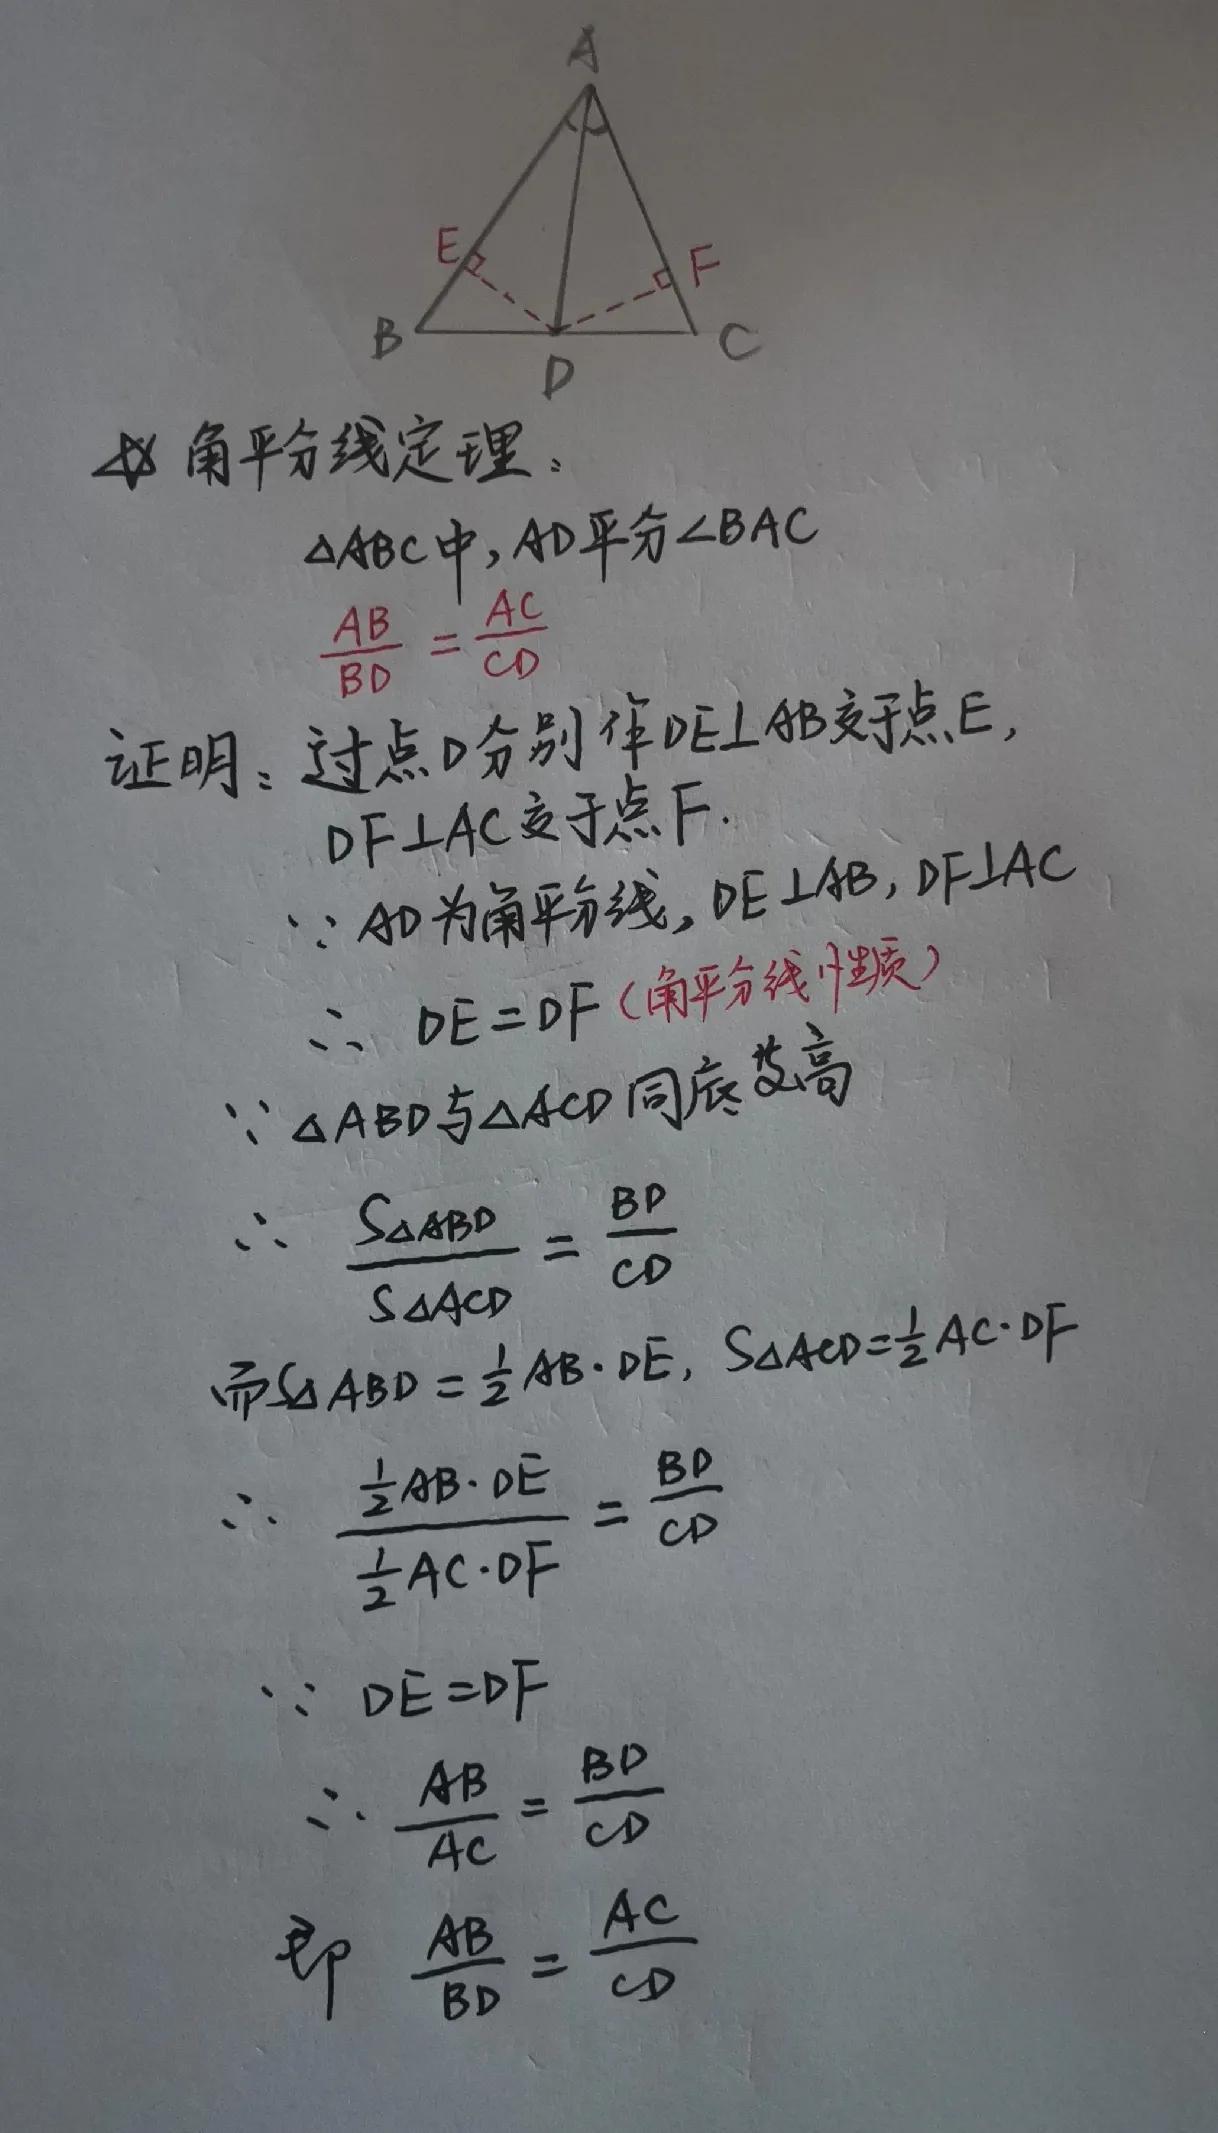 A
E
F
B
D
C
☆ 角平分线定理:
△ABC中, AD平分∠BAC
AB/BD = AC/CD
证明: 过点D分别作DE⊥AB交于点E,
DF⊥AC交于点F.
∵ AD为角平分线, DE⊥AB, DF⊥AC
∴ DE=DF (角平分线性质)
∵ △ABD与△ACD同底等高
∴ S△ABD/S△ACD = BD/CD
而S△ABD=1/2AB·DE, S△ACD=1/2AC·DF
∴ 1/2AB·DE / 1/2AC·DF = BD/CD
∵ DE=DF
∴ AB/AC = BD/CD
即 AB/BD = AC/CD